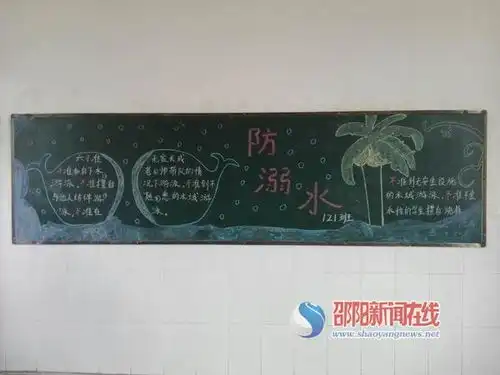 防
溺
水
121班
六不准
不准私自下水
游泳,不准擅自
与他人结伴游
泳,不准在
无家长或
老师带队的情
况下游泳,不准到不
熟悉的水域游
泳,
不准到无安全设施
的水域游泳,不准
水性的学生擅自
邵阳新闻在线
www.shaoyangnews.net